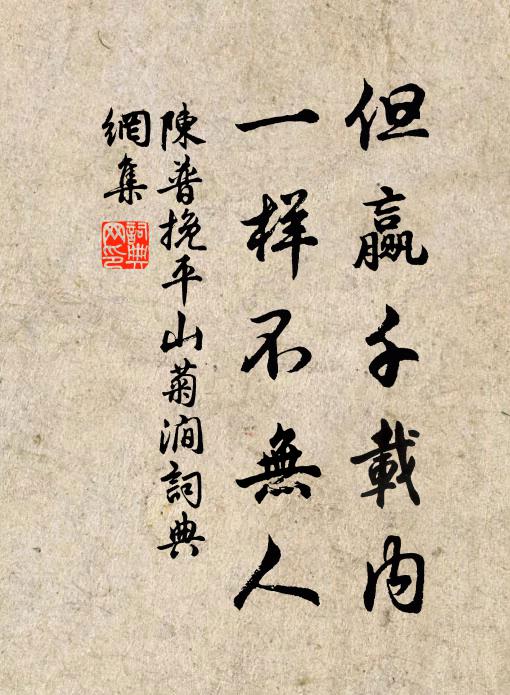 但赢千載内
一样不無人
陳普挽平山菊澗詞典
網集
詞典网印